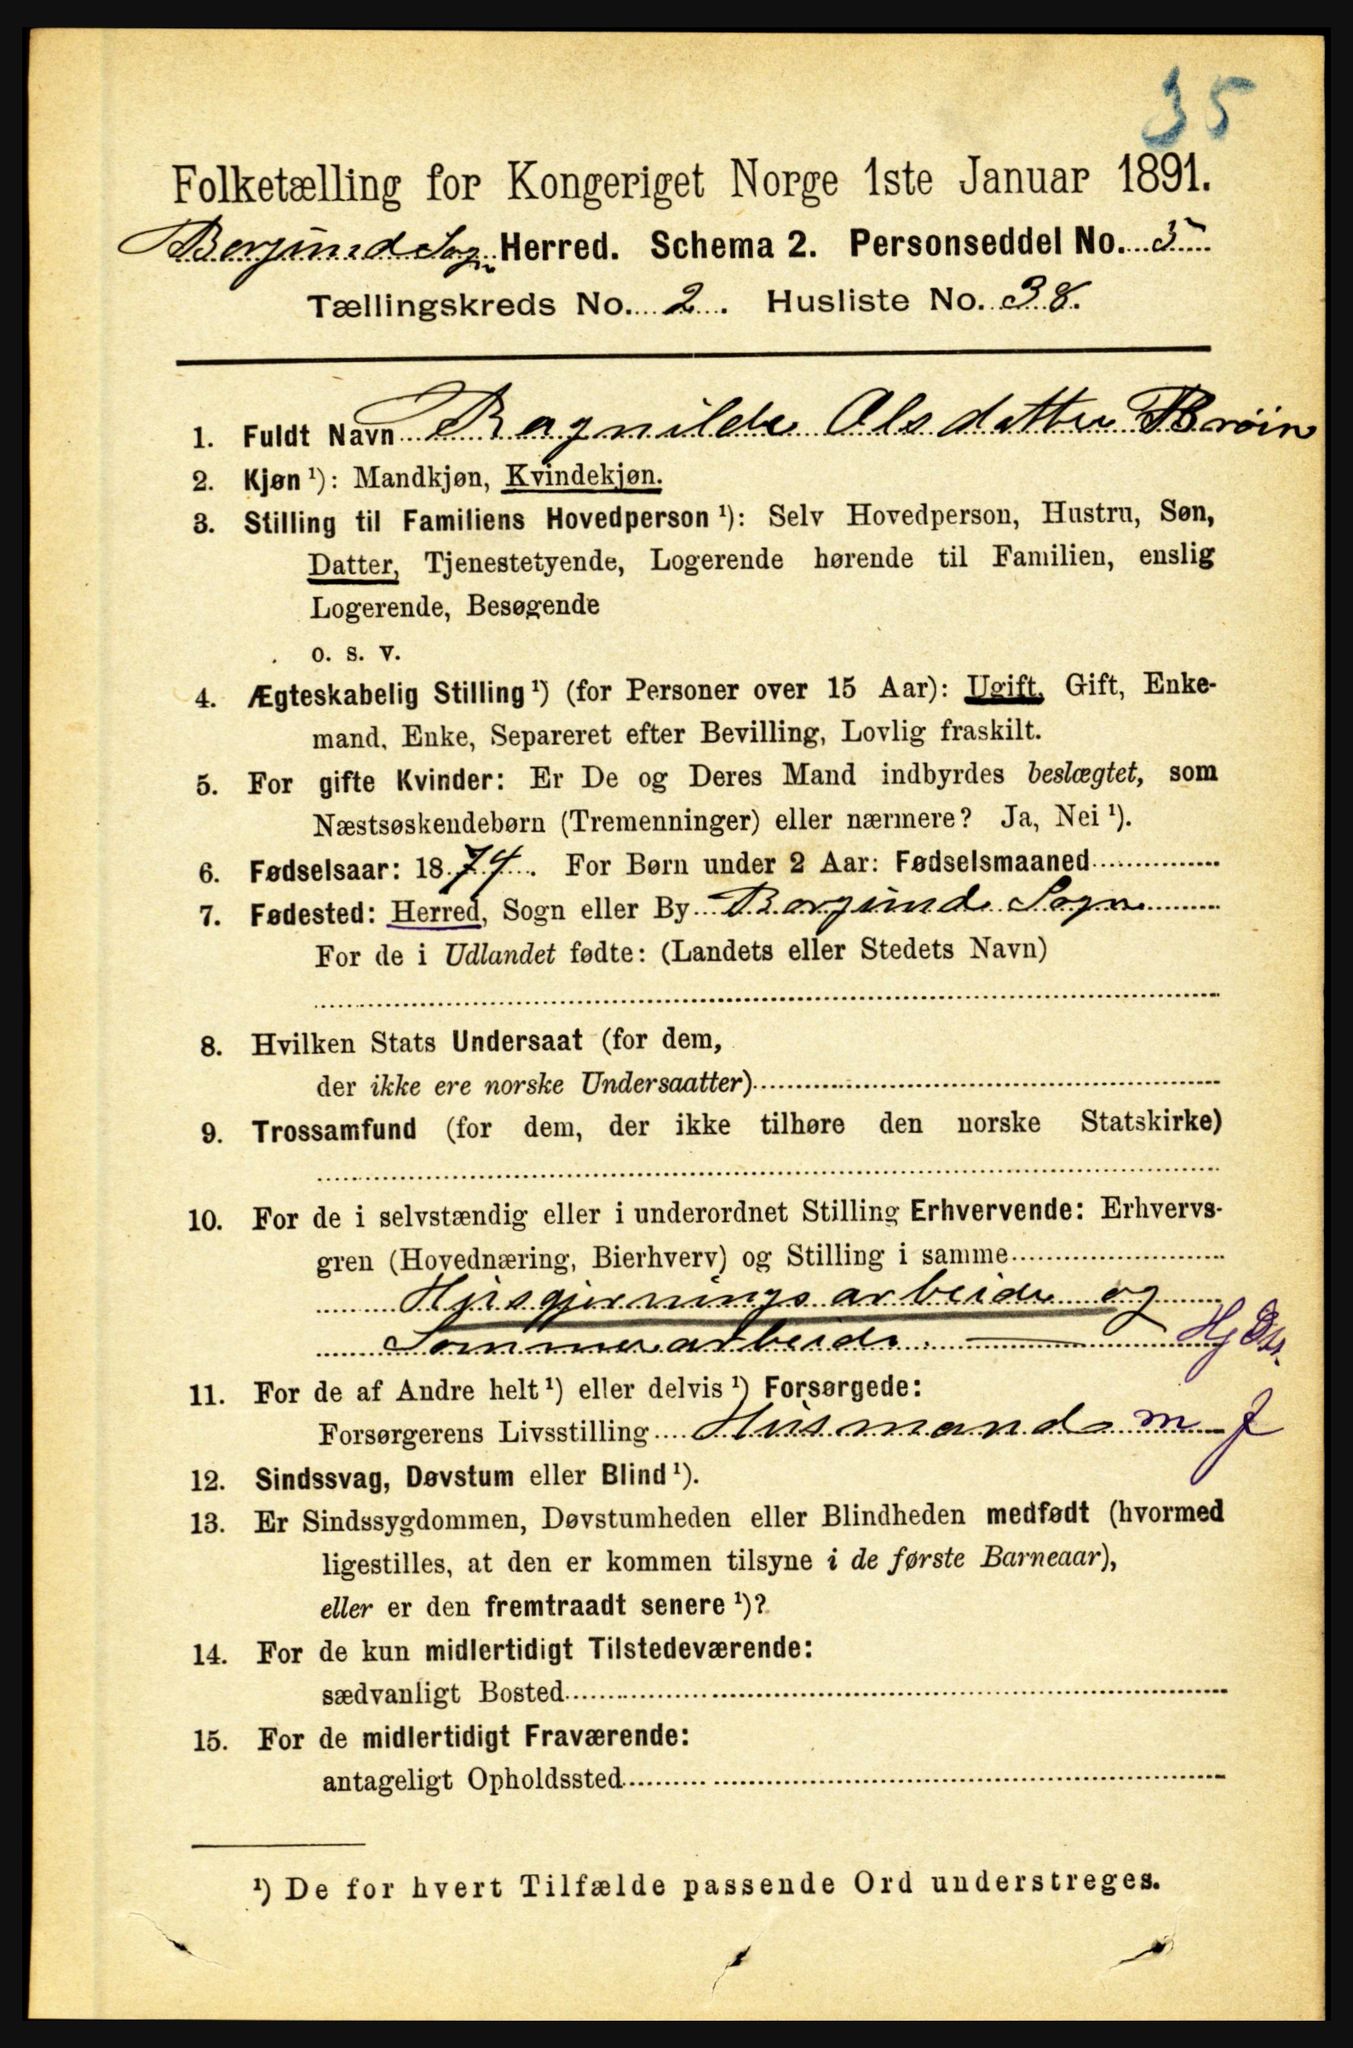 35
Folketælling for Kongeriget Norge 1ste Januar 1891.
Borgund Sogn Herred. Schema 2. Personseddel No. 5
Tællingskreds No. 2. Husliste No. 38.
1. Fuldt Navn Ragnilde Olsdatter
2. Kjøn ¹): Mandkjøn, Kvindekjøn.
3. Stilling til Familiens Hovedperson ¹): Selv Hovedperson, Hustru, Søn,
Datter, Tjenestetyende, Logerende hørende til Familien, enslig
Logerende, Besøgende
o. s. v.
4. Ægteskabelig Stilling ¹) (for Personer over 15 Aar): Ugift, Gift, Enke-
mand, Enke, Separeret efter Bevilling, Lovlig fraskilt.
5. For gifte Kvinder: Er De og Deres Mand indbyrdes beslægtet, som
Næstsøskendebørn (Tremenninger) eller nærmere? Ja, Nei ¹).
6. Fødselsaar: 1874. For Børn under 2 Aar: Fødselsmaaned
7. Fødested: Herred, Sogn eller By Borgund Sogn
For de i Udlandet fødte: (Landets eller Stedets Navn)
8. Hvilken Stats Undersaat (for dem,
der ikke ere norske Undersaatter)
9. Trossamfund (for dem, der ikke tilhøre den norske Statskirke)
10. For de i selvstændig eller i underordnet Stilling Erhvervende: Erhvervs-
gren (Hovednæring, Bierhverv) og Stilling i samme
Husgjerningsarbeide og
Sommerarbeide.
11. For de af Andre helt ¹) eller delvis ¹) Forsørgede:
Forsørgerens Livsstilling Husmand m J
12. Sindssvag, Døvstum eller Blind ¹).
13. Er Sindssygdommen, Døvstumheden eller Blindheden medfødt (hvormed
ligestilles, at den er kommen tilsyne i de første Barneaar),
eller er den fremtraadt senere ¹)?
14. For de kun midlertidigt Tilstedeværende:
sædvanligt Bosted
15. For de midlertidigt Fraværende:
antageligt Opholdssted
¹) De for hvert Tilfælde passende Ord understreges.